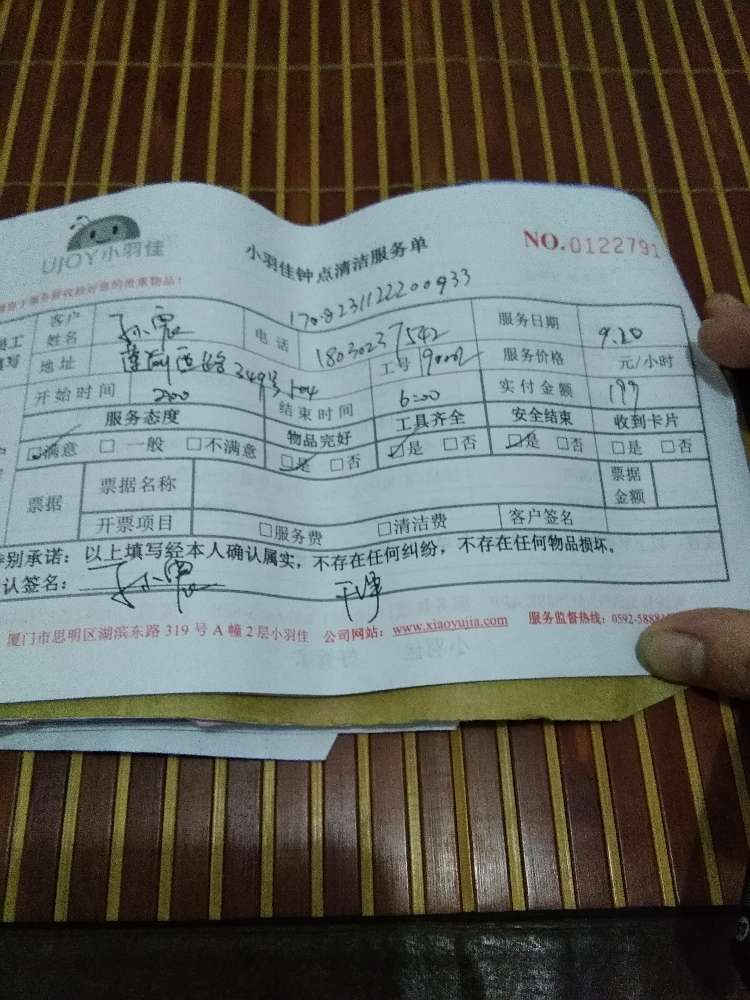 UJOY小羽佳
小羽佳钟点清洁服务单
NO.0122791
客户姓名 电话 18030237542 服务日期 9.20
地址 工号 服务价格 元/小时
开始时间 2:00 结束时间 6:00 实付金额 199
服务态度 物品完好 工具齐全 安全结束 收到卡片
☑满意 □一般 □不满意 ☑是 □否 ☑是 □否 ☑是 □否 □是 □否
票据 票据名称 票据金额
开票项目 □服务费 □清洁费 客户签名
别承诺:以上填写经本人确认属实,不存在任何纠纷,不存在任何物品损坏。
认签名: 干净
厦门市思明区湖滨东路 319 号 A 幢 2 层小羽佳 公司网站:www.xiaoyujia.com 服务监督热线:0592-5888